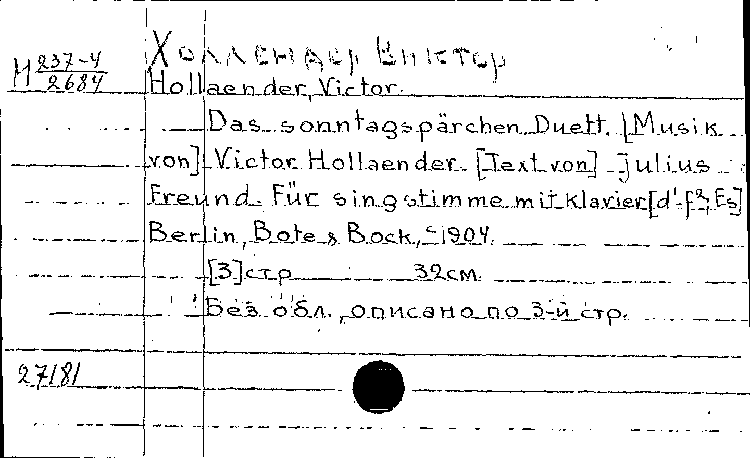 Холлендер Виктор
М 237-4
2684
Hollaender, Victor.
Das sonntagspärchen. Duett. [Musik
von] Victor Hollaender. [Text von] Julius
Freund. Für singstimme mit klavier [d'-f², Es]
Berlin, Bote & Bock, c 1904.
[3] стр 32 см.
Без обл., описано по 3-й стр.
27181